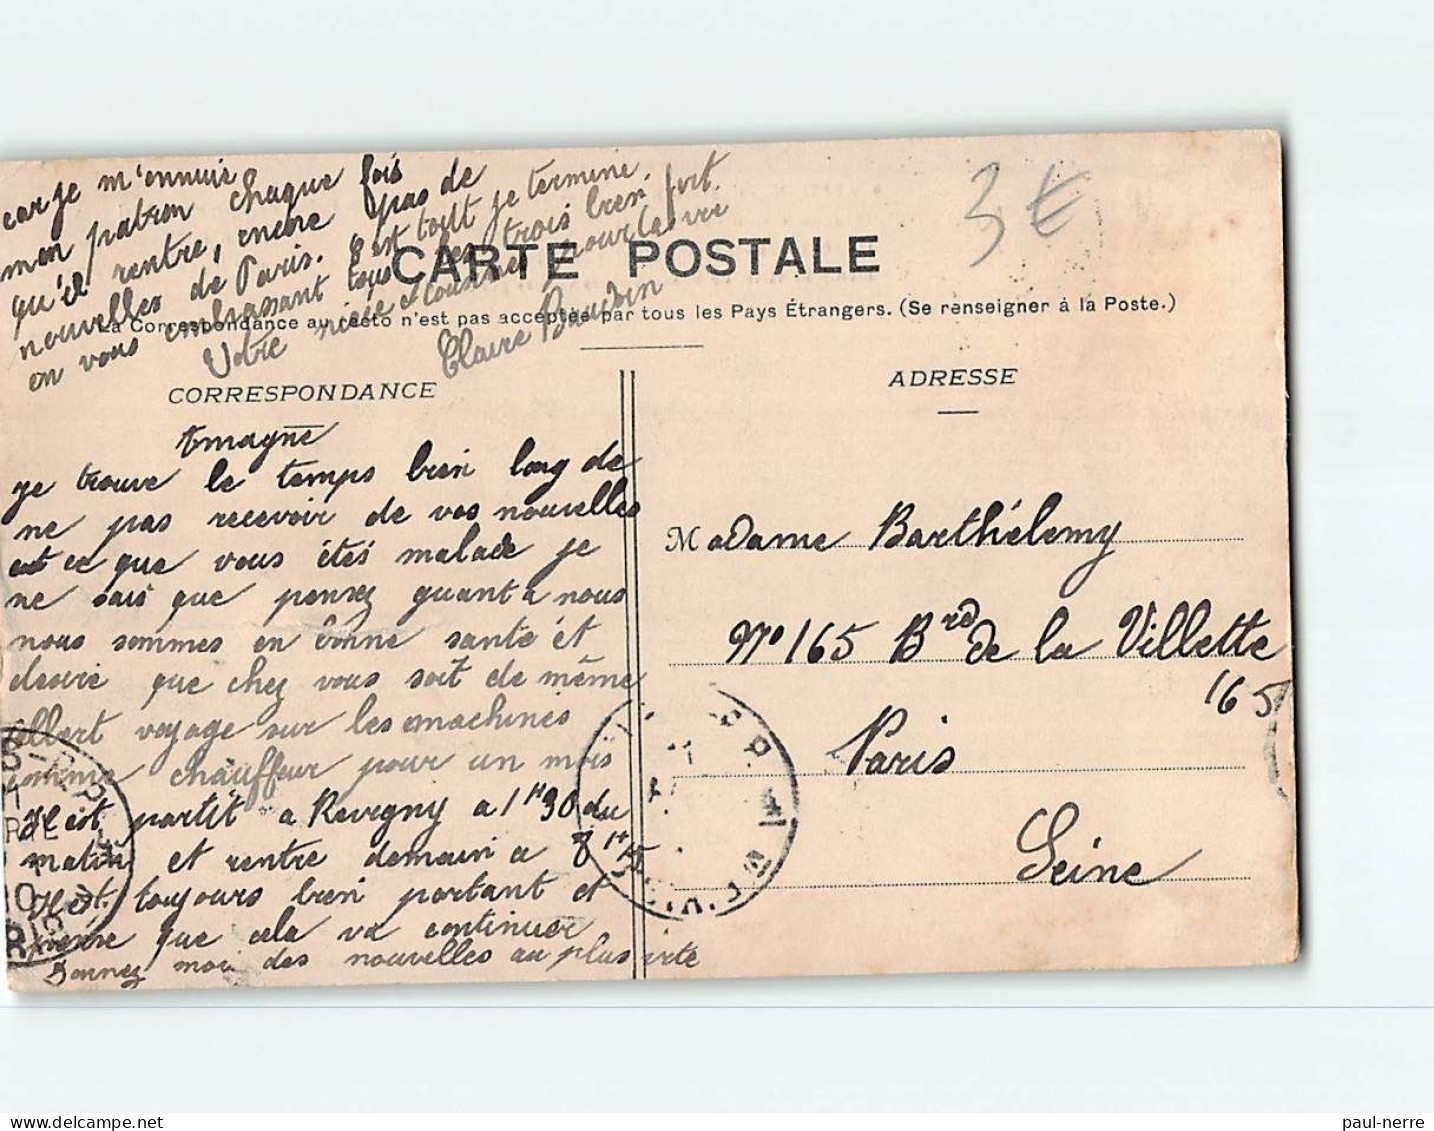 car je m'ennuie
mon patron chaque fois
qu'il rentre, encore pas de
nouvelles de Paris. c'est tout je termine.
en vous embrassant tous les trois bien fort.
Votre nièce et cousine pour la vie
Claire Baudoin
3€
CARTE POSTALE
La Correspondance au recto n'est pas acceptée par tous les Pays Étrangers. (Se renseigner à la Poste.)
CORRESPONDANCE
Amagne
je trouve le temps bien long de
ne pas recevoir de vos nouvelles
est ce que vous êtes malade je
ne sais que pensez quant à nous
nous sommes en bonne santé et
desire que chez vous soit de même
Albert voyage sur les machines
comme chauffeur pour un mois
il est partit a Revigny a 1H30 du
matin et rentre demain a 8H
il est toujours bien portant et
j'espère que cela va continuer
Donnez moi des nouvelles au plus vite
ADRESSE
Madame Barthélemy
No 165 Brd de la Villette
165
Paris
Seine
paul-nerre